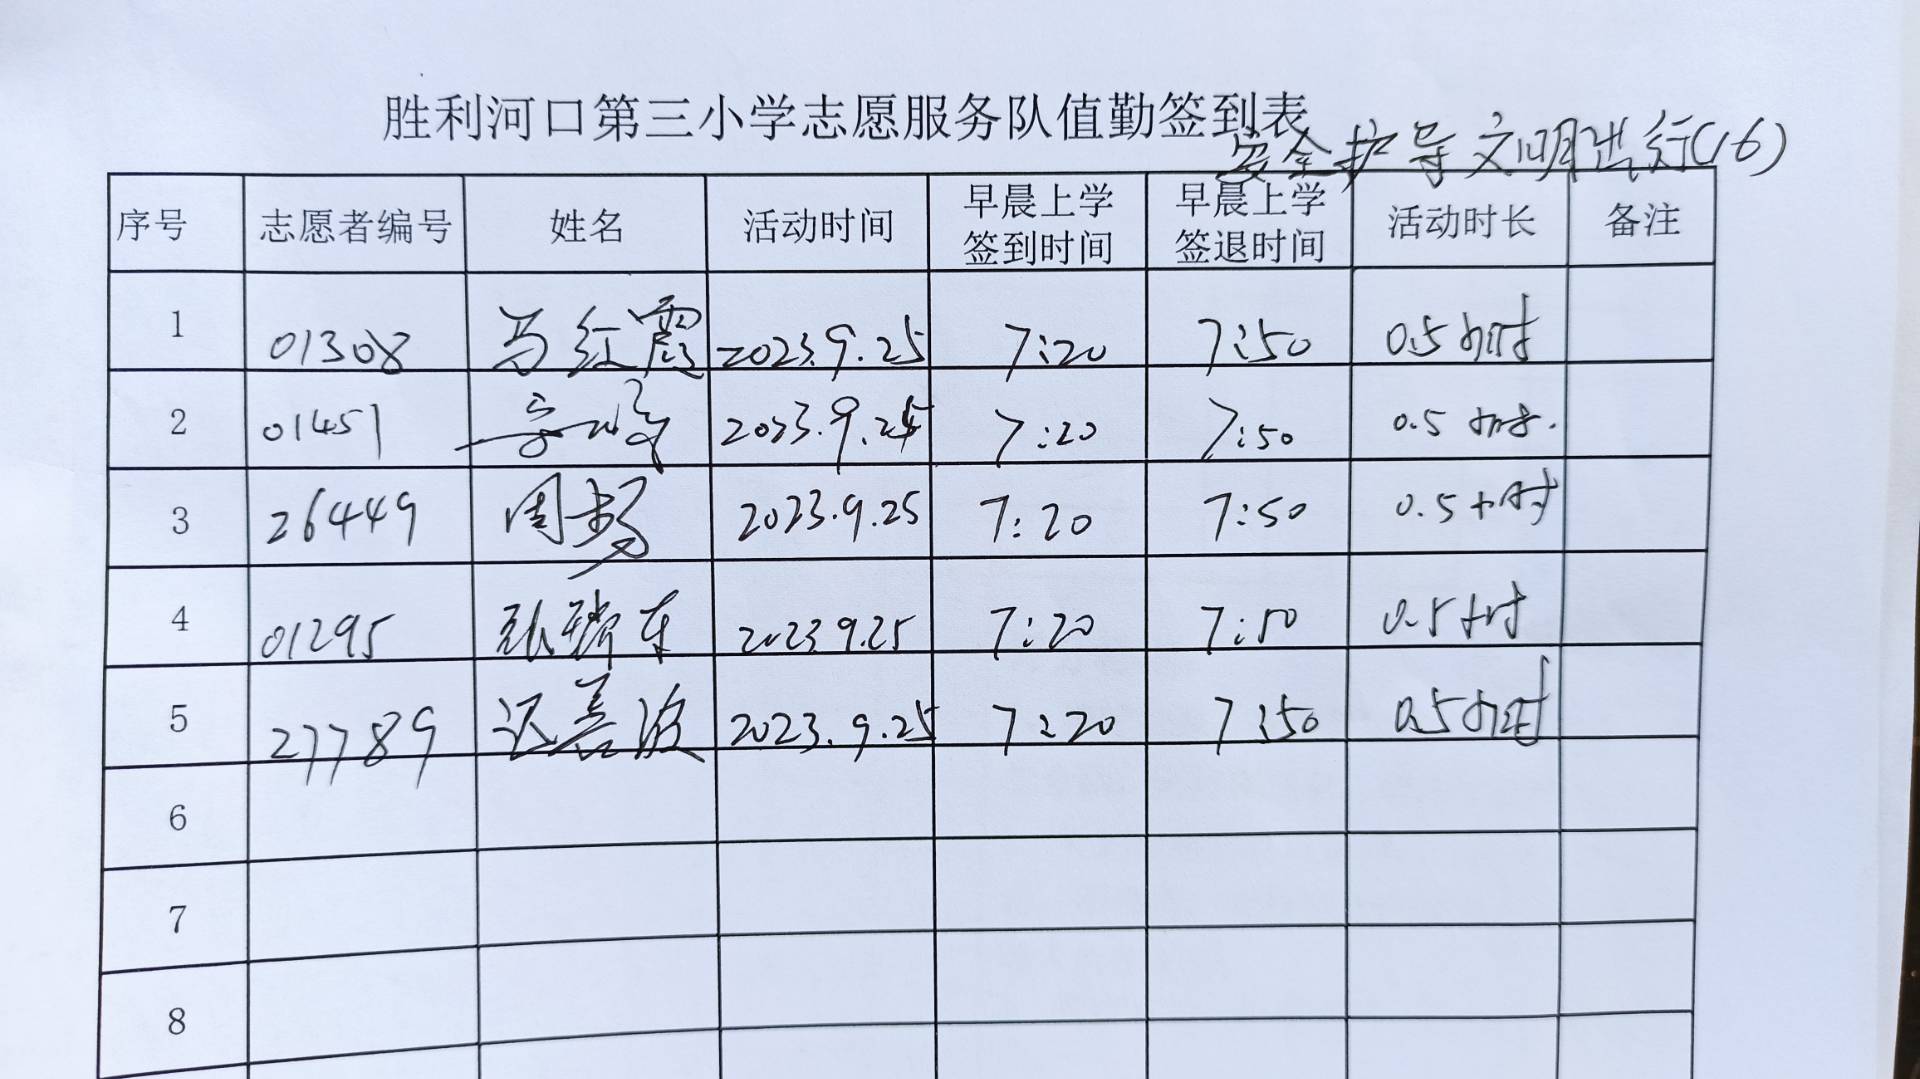 胜利河口第三小学志愿服务队值勤签到表
安全护导 文明出行(16)
序号 志愿者编号 姓名 活动时间 早晨上学签到时间 早晨上学签退时间 活动时长 备注
1 01308 马红霞 2023.9.25 7:20 7:50 0.5小时
2 01451 2023.9.25 7:20 7:50 0.5小时.
3 26449 周 2023.9.25 7:20 7:50 0.5小时
4 01295 张瑞东 2023 9.25 7:20 7:50 0.5小时
5 27789 善波 2023.9.25 7:20 7:50 0.5小时
6
7
8